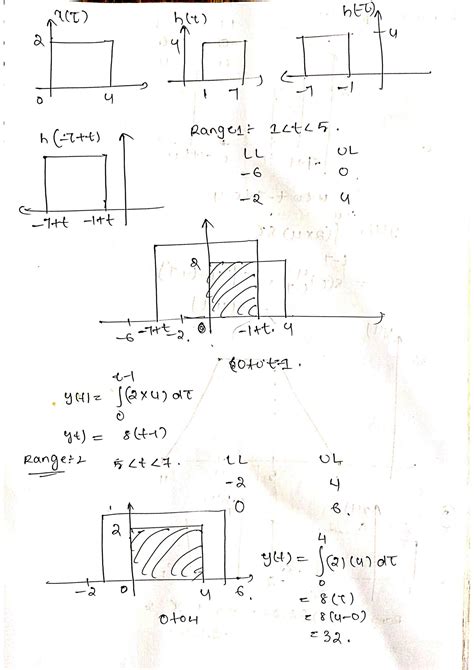 x(τ) h(τ) h(-τ)
2 4 4
0 4 1 7 -7 -1
h(-τ+t) Range1:- 1<t<5.
LL UL
-6 0
-7+t -1+t -2 4
2
-6 -7+t -2 0 -1+t. 4
0 to t-1.
y(t) = ∫₀ᵗ⁻¹ (2×4) dτ
y(t) = 8(t-1)
Range:-2 5<t<7. LL UL
-2 4
0 6.
2
-2 0 4 6.
0 to 4
y(t) = ∫₀⁴ (2)(4) dτ
= 8(τ)
= 8(4-0)
= 32.